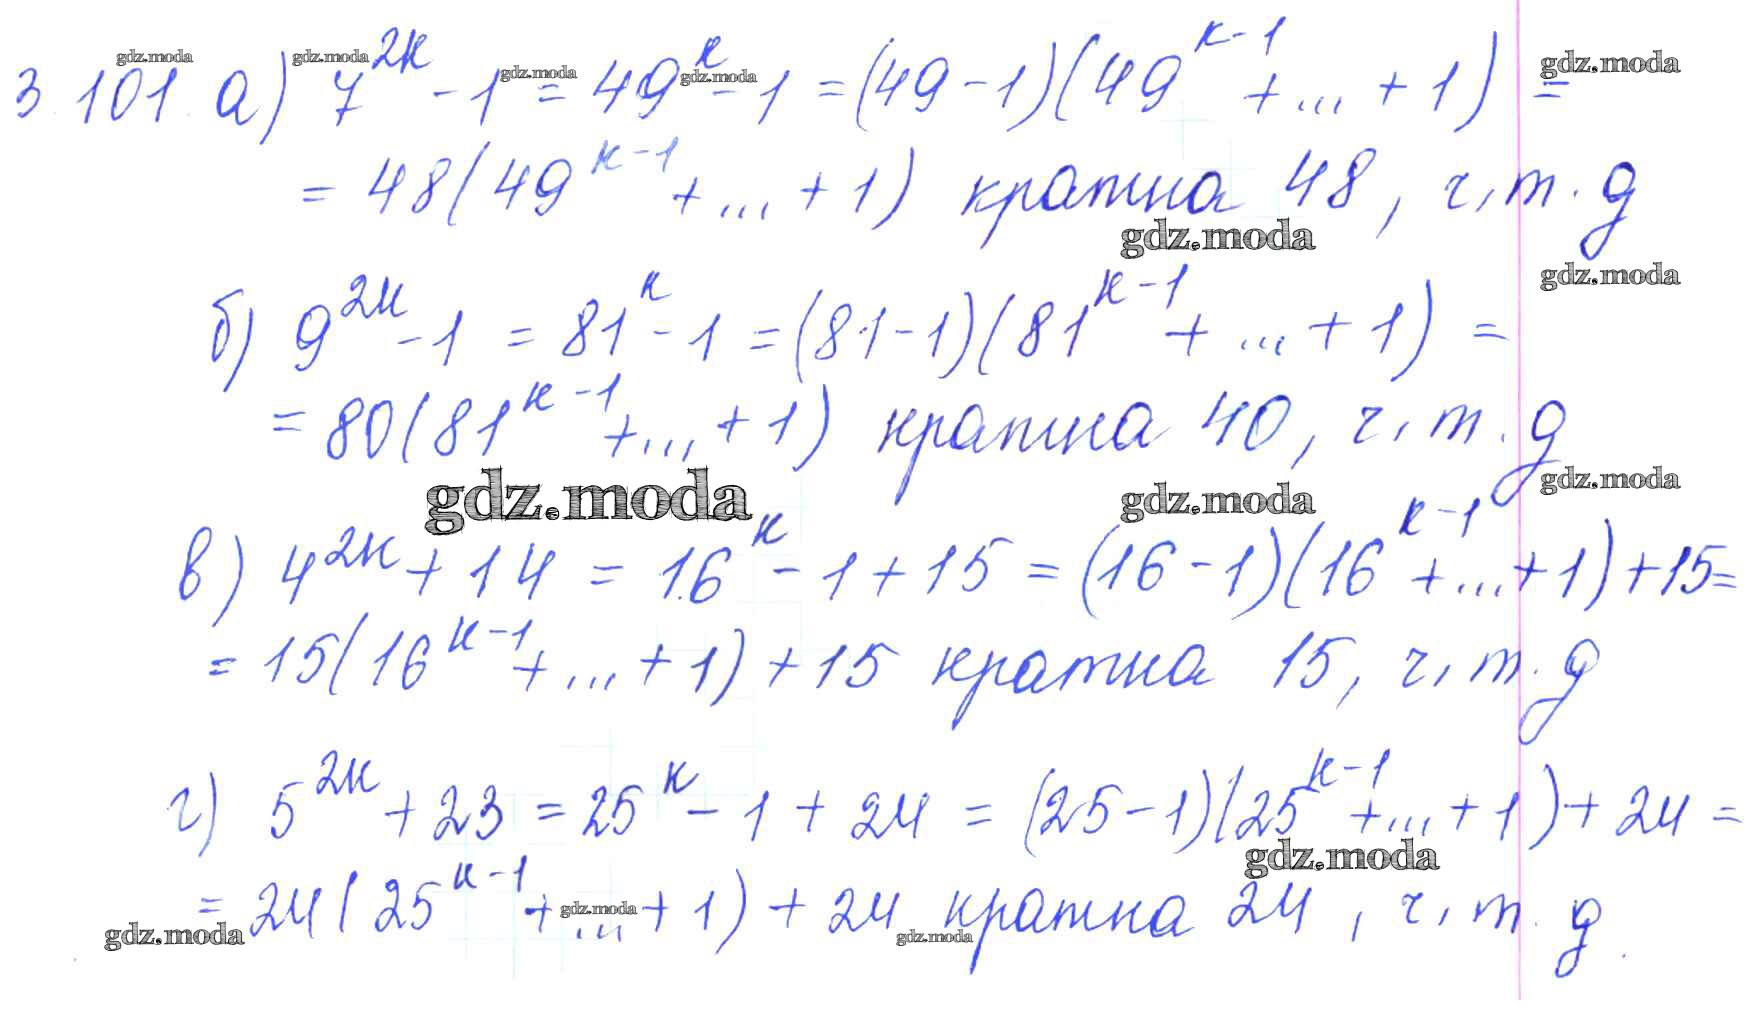 3.101. а) 7^{2к} - 1 = 49^к - 1 = (49 - 1)(49^{к-1} + ... + 1) =
= 48(49^{к-1} + ... + 1) кратна 48, ч.т.д
б) 9^{2к} - 1 = 81^к - 1 = (81 - 1)(81^{к-1} + ... + 1) =
= 80(81^{к-1} + ... + 1) кратна 40, ч.т.д
в) 4^{2к} + 14 = 16^к - 1 + 15 = (16 - 1)(16^{к-1} + ... + 1) + 15 =
= 15(16^{к-1} + ... + 1) + 15 кратна 15, ч.т.д
г) 5^{2к} + 23 = 25^к - 1 + 24 = (25 - 1)(25^{к-1} + ... + 1) + 24 =
= 24(25^{к-1} + ... + 1) + 24 кратна 24, ч.т.д.
gdz.moda
gdz.moda
gdz.moda
gdz.moda
gdz.moda
gdz.moda
gdz.moda
gdz.moda
gdz.moda
gdz.moda
gdz.moda
gdz.moda
gdz.moda
gdz.moda